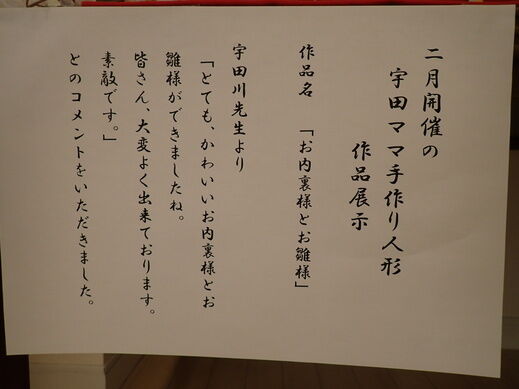 二月開催の
宇田ママ手作り人形
作品展示
作品名 「お内裏様とお雛様」
宇田川先生より
「とても、かわいいお内裏様とお
雛様ができましたね。
皆さん、大変よく出来ております。
素敵です。」
とのコメントをいただきました。